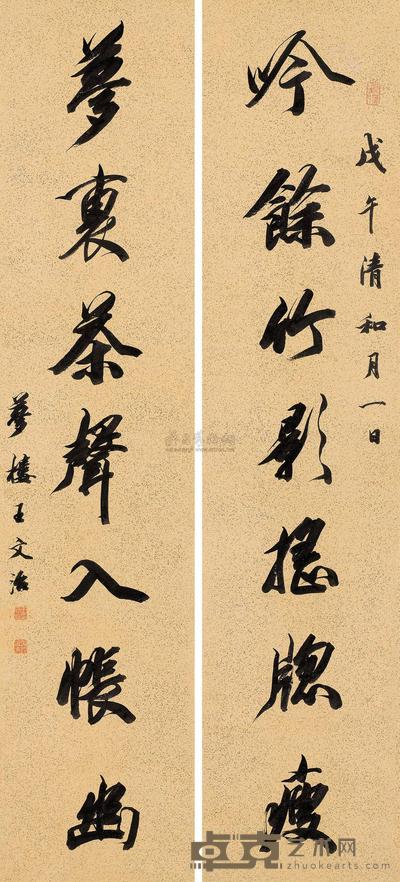 戊午清和月一日
吟餘竹影搖牕瘦
夢裏茶聲入帳幽
夢樓王文治
卓克艺术网
zhuokearts.com